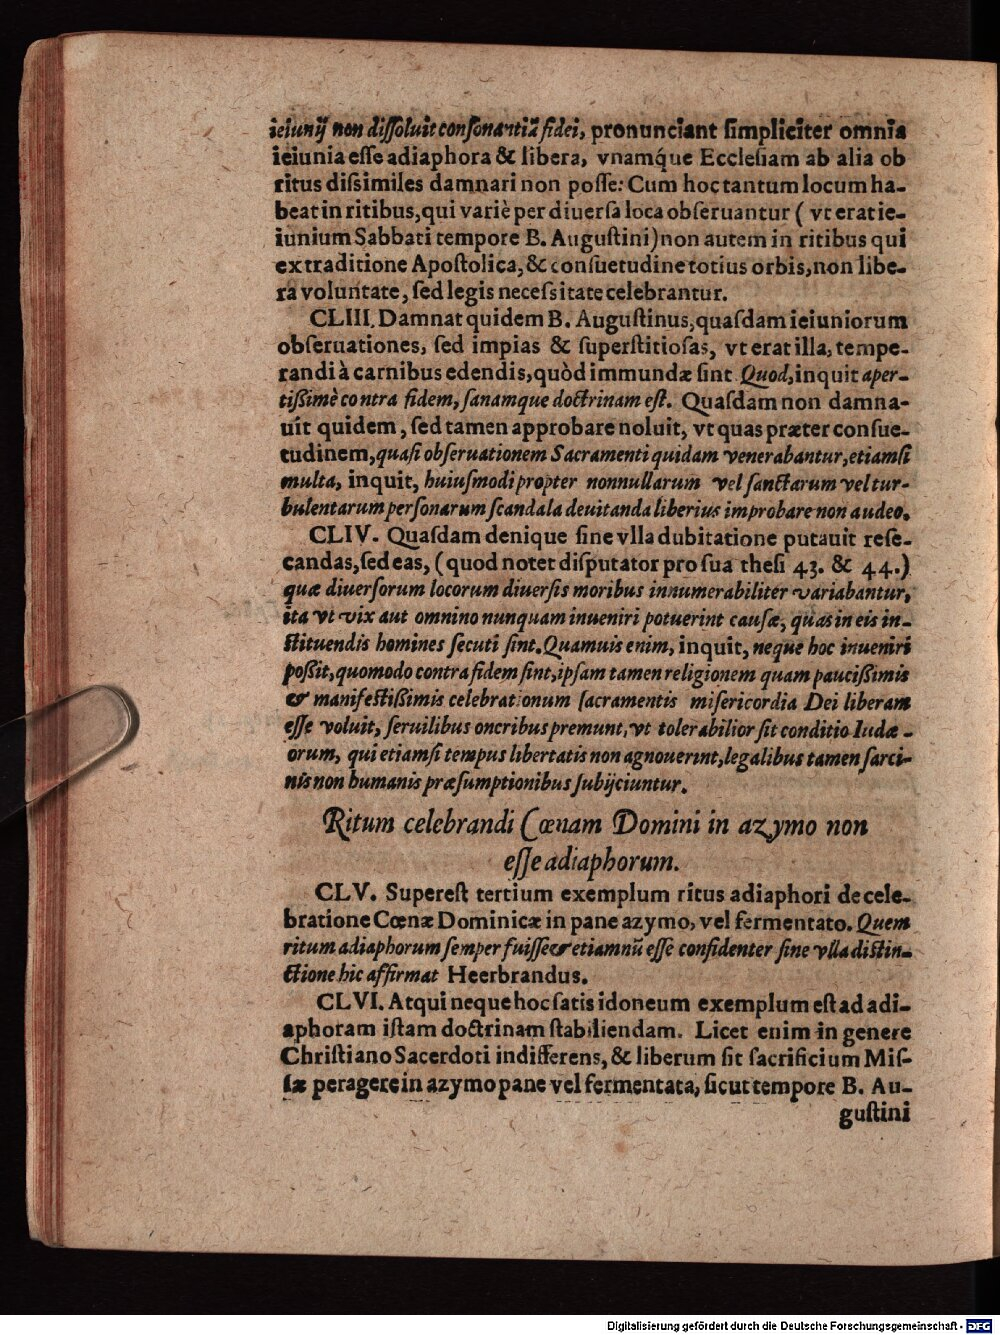 ieiunij non diſſoluit conſonantiã fidei, pronunciant ſimpliciter omnia
ieiunia eſſe adiaphora & libera, vnamq́ue Eccleſiam ab alia ob
ritus diſsimiles damnari non poſſe: Cum hoc tantum locum ha-
beat in ritibus, qui variè per diuerſa loca obſeruantur ( vt erat ie-
iunium Sabbati tempore B. Auguſtini) non autem in ritibus qui
ex traditione Apoſtolica, & conſuetudine totius orbis, non libe-
ra voluntate, ſed legis neceſsitate celebrantur.
CLIII. Damnat quidem B. Auguſtinus, quaſdam ieiuniorum
obſeruationes, ſed impias & ſuperſtitioſas, vt erat illa, tempe-
randi à carnibus edendis, quòd immundæ ſint. Quod, inquit aper-
tißimè contra fidem, ſanamque doctrinam eſt. Quaſdam non damna-
uit quidem, ſed tamen approbare noluit, vt quas præter conſue-
tudinem, quaſi obſeruationem Sacramenti quidam venerabantur, etiamſi
multa, inquit, huiuſmodi propter nonnullarum vel ſanctarum vel tur-
bulentarum perſonarum ſcandala deuitanda liberius improbare non audeo.
CLIV. Quaſdam denique ſine vlla dubitatione putauit reſe-
candas, ſed eas, (quod notet diſputator pro ſua theſi 43. & 44.)
quæ diuerſorum locorum diuerſis moribus innumerabiliter variabantur,
ita vt vix aut omnino nunquam inueniri potuerint cauſæ, quas in eis in-
ſtituendis homines ſecuti ſint. Quamuis enim, inquit, neque hoc inueniri
poßit, quomodo contra fidem ſint, ipſam tamen religionem quam paucißimis
& manifeſtißimis celebrationum ſacramentis miſericordia Dei liberam
eſſe voluit, ſeruilibus oneribus premunt, vt tolerabilior ſit conditio Iudæ-
orum, qui etiamſi tempus libertatis non agnouerint, legalibus tamen ſarci-
nis non humanis præſumptionibus ſubijciuntur.
Ritum celebrandi Cœnam Domini in azymo non
eſſe adiaphorum.
CLV. Supereſt tertium exemplum ritus adiaphori de cele-
bratione Cœnæ Dominicæ in pane azymo, vel fermentato. Quem
ritum adiaphorum ſemper fuiſſe & etiamnũ eſſe confidenter ſine vlla diſtin-
ctione hic affirmat Heerbrandus.
CLVI. Atqui neque hoc ſatis idoneum exemplum eſt ad adi-
aphoram iſtam doctrinam ſtabiliendam. Licet enim in genere
Chriſtiano Sacerdoti indifferens, & liberum ſit ſacrificium Miſ-
ſæ peragere in azymo pane vel fermentata, ſicut tempore B. Au-
guſtini
Digitalisierung gefördert durch die Deutsche Forschungsgemeinschaft - DFG